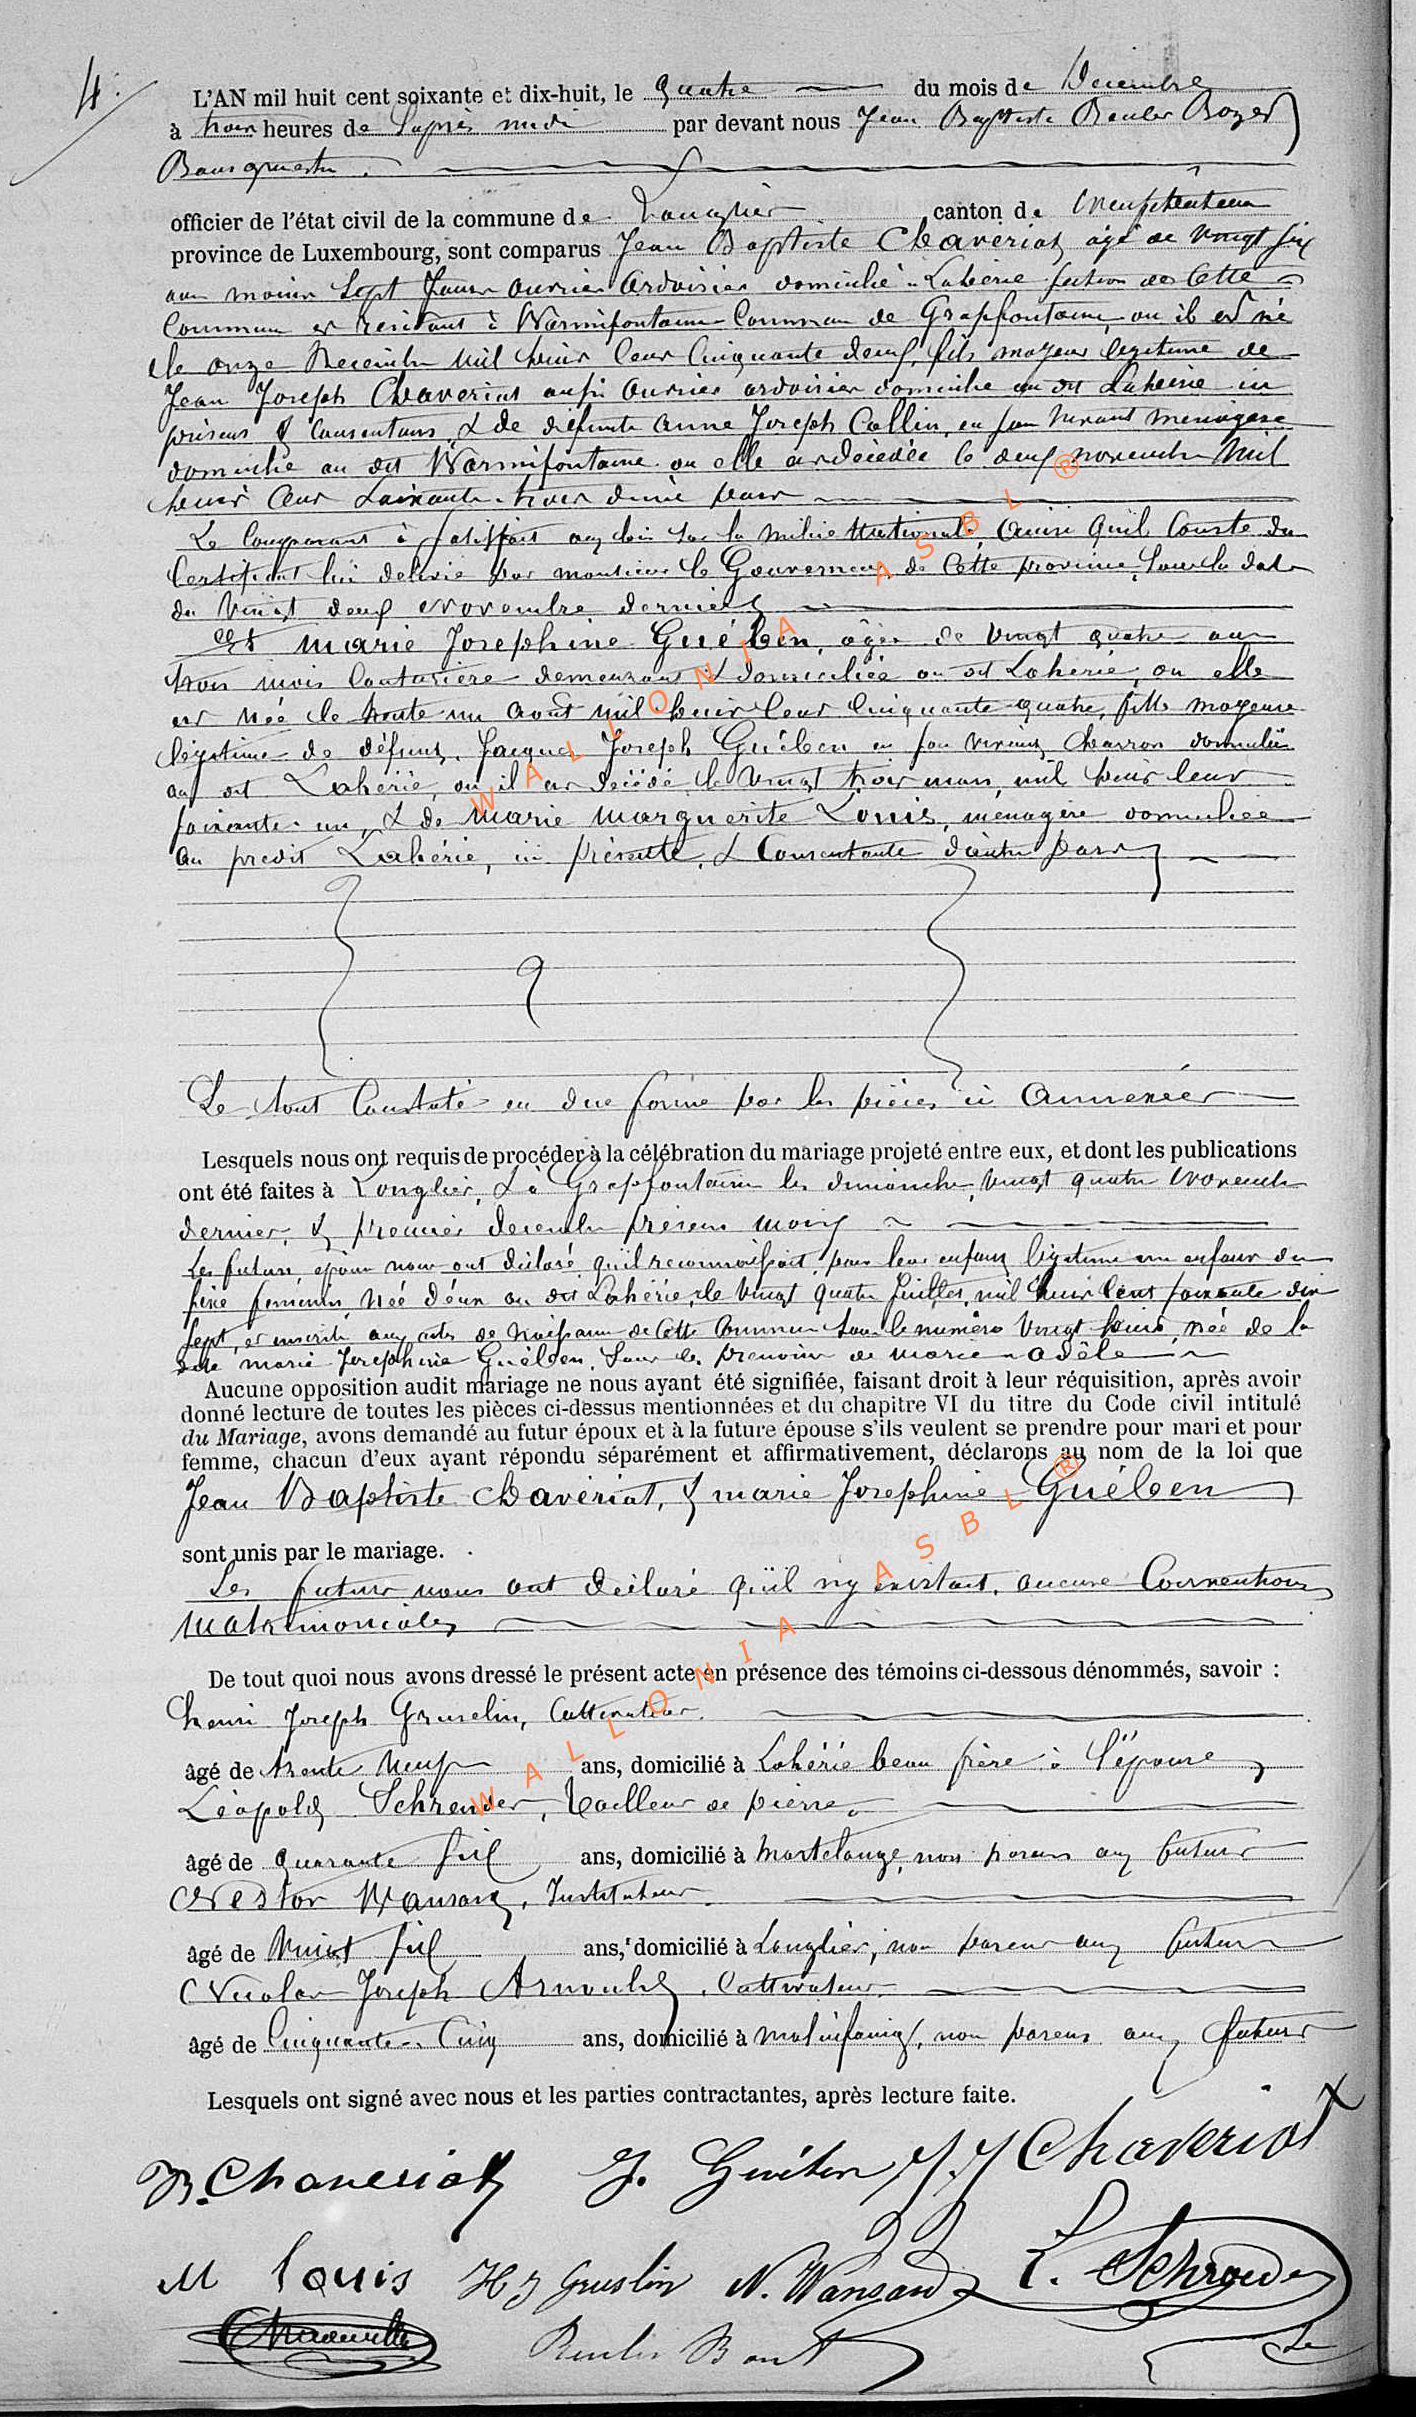 4.
L'AN mil huit cent soixante et dix-huit, le quatre du mois de Decembre
à trois heures de l'après midi par devant nous Jean Baptiste Reuler
Bourgmestre.
officier de l'état civil de la commune de Longlier canton de Neufchâteau
province de Luxembourg, sont comparus Jean Baptiste Chavériat, âgé de vingt six
ans moins sept jours ouvrier ardoisier domicilié à Lahérie section de cette
Commune et résidant à Warmifontaine Commune de Grapfontaine, où il est né
le onze Decembre mil huit cent cinquante deux, fils majeur légitime de
Jean Joseph Chavériat aussi ouvrier ardoisier domicilié au dit Lahérie ici
présent & consentant, & de défunte Anne Joseph Collin, en son vivant ménagère
domiciliée au dit Warmifontaine où elle est décédée le deux novembre mil
huit cent soixante-trois d'une part
Le Comparant à satisfait aux lois sur la milice Nationale, ainsi qu'il conste du
Certificat lui délivré par monsieur le Gouverneur de Cette province, sous la date
du vingt deux Novembre dernier
Et Marie Josephine Guében, âgée de vingt quatre ans
trois mois Couturière demeurant & domiciliée au dit Lahérie, où elle
est née le trente un Août mil huit cent cinquante-quatre, fille majeure
légitime de défunt Jacques Joseph Guében en son vivant, charron domicilié
au dit Lahérie, où il est décédé le vingt trois mars, mil huit cent
soixante-un, & de Marie Marguerite Louis, ménagère domiciliée
au predit Lahérie, ici présente, & Consentante d'autre part
Le tout Constaté en due forme par les pièces ci Annexées
Lesquels nous ont requis de procéder à la célébration du mariage projeté entre eux, et dont les publications
ont été faites à Longlier, & à Grapfontaine les dimanche, vingt quatre Novembre
dernier, & premier decembre présent mois
Les futurs époux nous ont déclaré qu'il reconnoissoit, pour leur enfant légitime un enfant du
sexe feminin, née d'eux au dit Lahérie, le vingt quatre Juillet, mil huit cent soixante dix
sept, et inscrite aux actes de Naissance de Cette Commune sous le numéro vingt huit, née de la
dite Marie Josephine Guében, sous les prénoms de Marie-Adèle
Aucune opposition audit mariage ne nous ayant été signifiée, faisant droit à leur réquisition, après avoir
donné lecture de toutes les pièces ci-dessus mentionnées et du chapitre VI du titre du Code civil intitulé
du Mariage, avons demandé au futur époux et à la future épouse s'ils veulent se prendre pour mari et pour
femme, chacun d'eux ayant répondu séparément et affirmativement, déclarons au nom de la loi que
Jean Baptiste Chavériat, & Marie Josephine Guében
sont unis par le mariage.
Les futurs nous ont déclaré qu'il n'y existait aucune Conventions
Matrimoniales
De tout quoi nous avons dressé le présent acte en présence des témoins ci-dessous dénommés, savoir :
Henri Joseph Gruslin, Cultivateur.
âgé de trente neuf ans, domicilié à Lahérie beau frère à l'épouse
Léopold Schreuder, tailleur de pierre
âgé de quarante six ans, domicilié à Martelange, non parent aux futurs
Nestor Wansard, Instituteur
âgé de vingt six ans, domicilié à Longlier, non parent aux futurs
Nicolas Joseph Arnould, Cultivateur
âgé de cinquante-cinq ans, domicilié à Molinfaing, non parent aux futurs
Lesquels ont signé avec nous et les parties contractantes, après lecture faite.
JB. Chaveriat J. Guében J. J Chaveriat
M Louis H J Gruslin N. Wansard L. Schreuder
Reuler
WALLONIA ASBL ®
WALLONIA ASBL ®